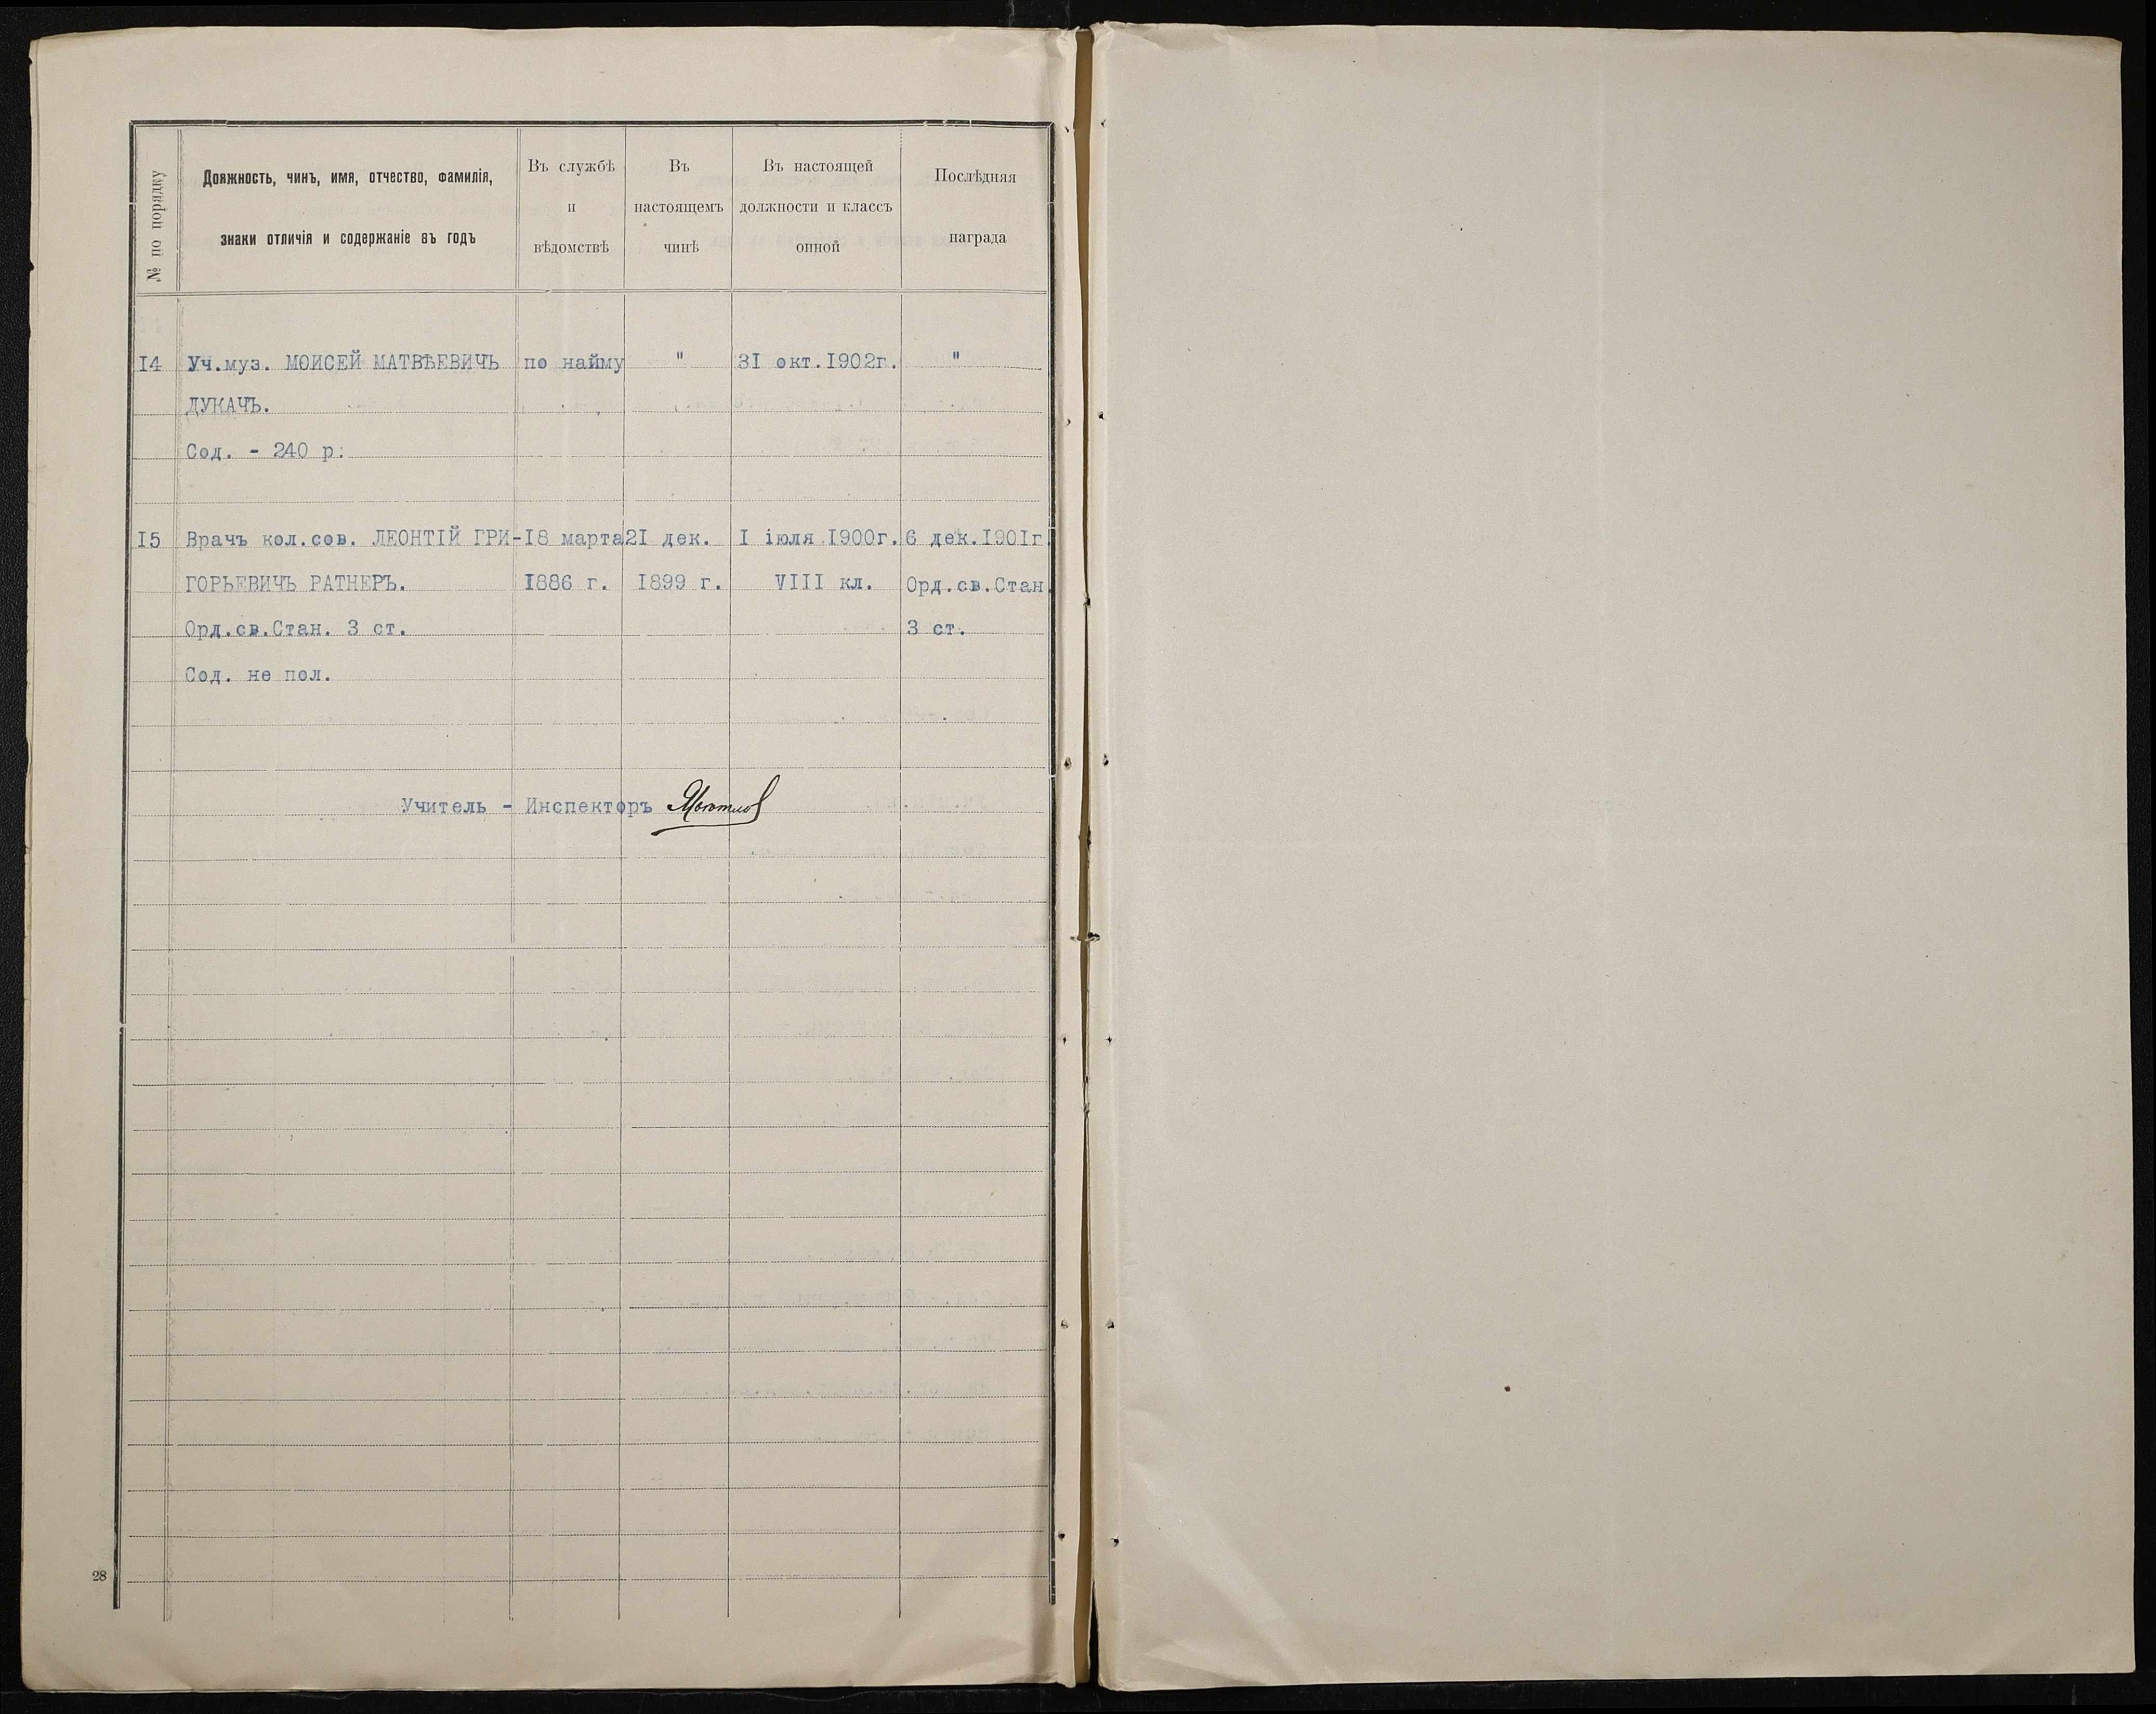 № по порядку
Должность, чинъ, имя, отчество, фамилія,
знаки отличія и содержаніе въ годъ
Въ службѣ
и
вѣдомствѣ
Въ
настоящемъ
чинѣ
Въ настоящей
должности и классъ
оной
Послѣдняя
награда
I4 Уч.муз. МОИСЕЙ МАТВѢЕВИЧЪ по найму " 3I окт.I902г. "
ДУКАЧЪ.
Сод. - 240 р.
I5 Врачъ кол.сов. ЛЕОНТІЙ ГРИ- I8 марта 2I дек. I іюля I900г. 6 дек.I90Iг.
ГОРЬЕВИЧЪ РАТНЕРЪ. I886 г. I899 г. VIII кл. Орд.св.Стан.
Орд.св.Стан. 3 ст. 3 ст.
Сод. не пол.
Учитель - Инспекторъ
28